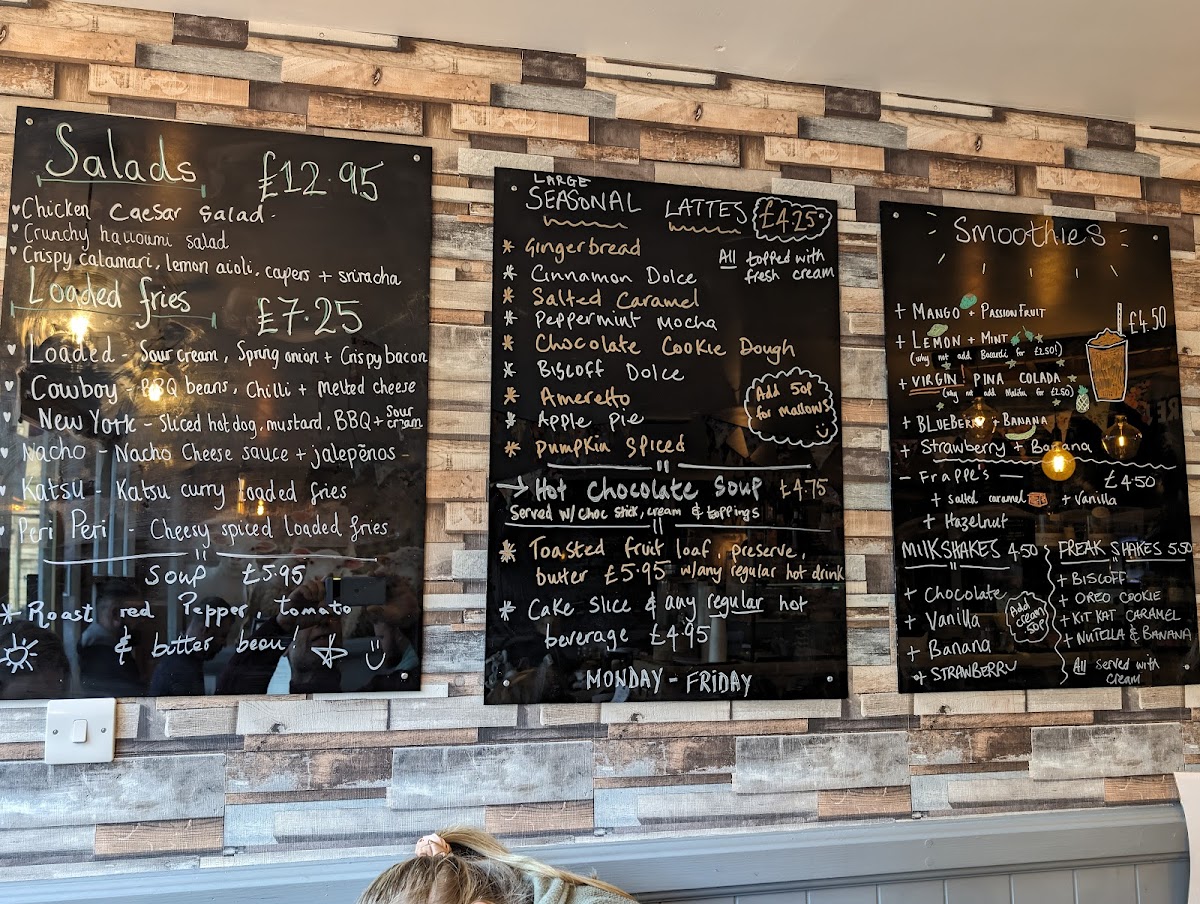 Salads £12.95
Chicken Caesar salad.
Crunchy halloumi salad
Crispy calamari, lemon aioli, capers + sriracha
Loaded fries £7.25
Loaded - Sour cream, Spring onion + Crispy bacon
Cowboy - BBQ beans, Chilli + Melted cheese
New York - Sliced hot dog, mustard, BBQ + Sour cream
Nacho - Nacho Cheese sauce + jalepēnos
Katsu - Katsu curry loaded fries
Peri Peri - Cheesy spiced loaded fries
Soup £5.95
* Roast red Pepper, tomato
& butter bean!
LARGE
SEASONAL LATTES £4.25
All topped with
fresh cream
* Gingerbread
* Cinnamon Dolce
* Salted Caramel
* Peppermint Mocha
* Chocolate Cookie Dough
* Biscoff Dolce
* Ameretto
* Apple Pie
* Pumpkin Spiced
Add 50p
for mallows
→ Hot Chocolate Soup £4.75
Served w/ choc stick, cream & toppings
* Toasted fruit loaf, preserve,
butter £5.95 w/any regular hot drink
* Cake slice & any regular hot
beverage £4.95
MONDAY - FRIDAY
Smoothies
£4.50
+ MANGO + PASSIONFRUIT
+ LEMON + MINT
(why not add Bacardi for £2.50!)
+ VIRGIN PINA COLADA
(why not add Malibu for £2.50)
+ BLUEBERRY + BANANA
+ Strawberry + Banana
- Frappe's - £4.50
+ salted caramel + Vanilla
+ Hazelnut
MILKSHAKES 4.50
+ Chocolate
+ Vanilla
+ Banana
+ STRAWBERRY
Add
cream
50p
FREAK SHAKES 5.50
+ BISCOFF
+ OREO COOKIE
+ KIT KAT CARAMEL
+ NUTELLA & BANANA
All served with
cream